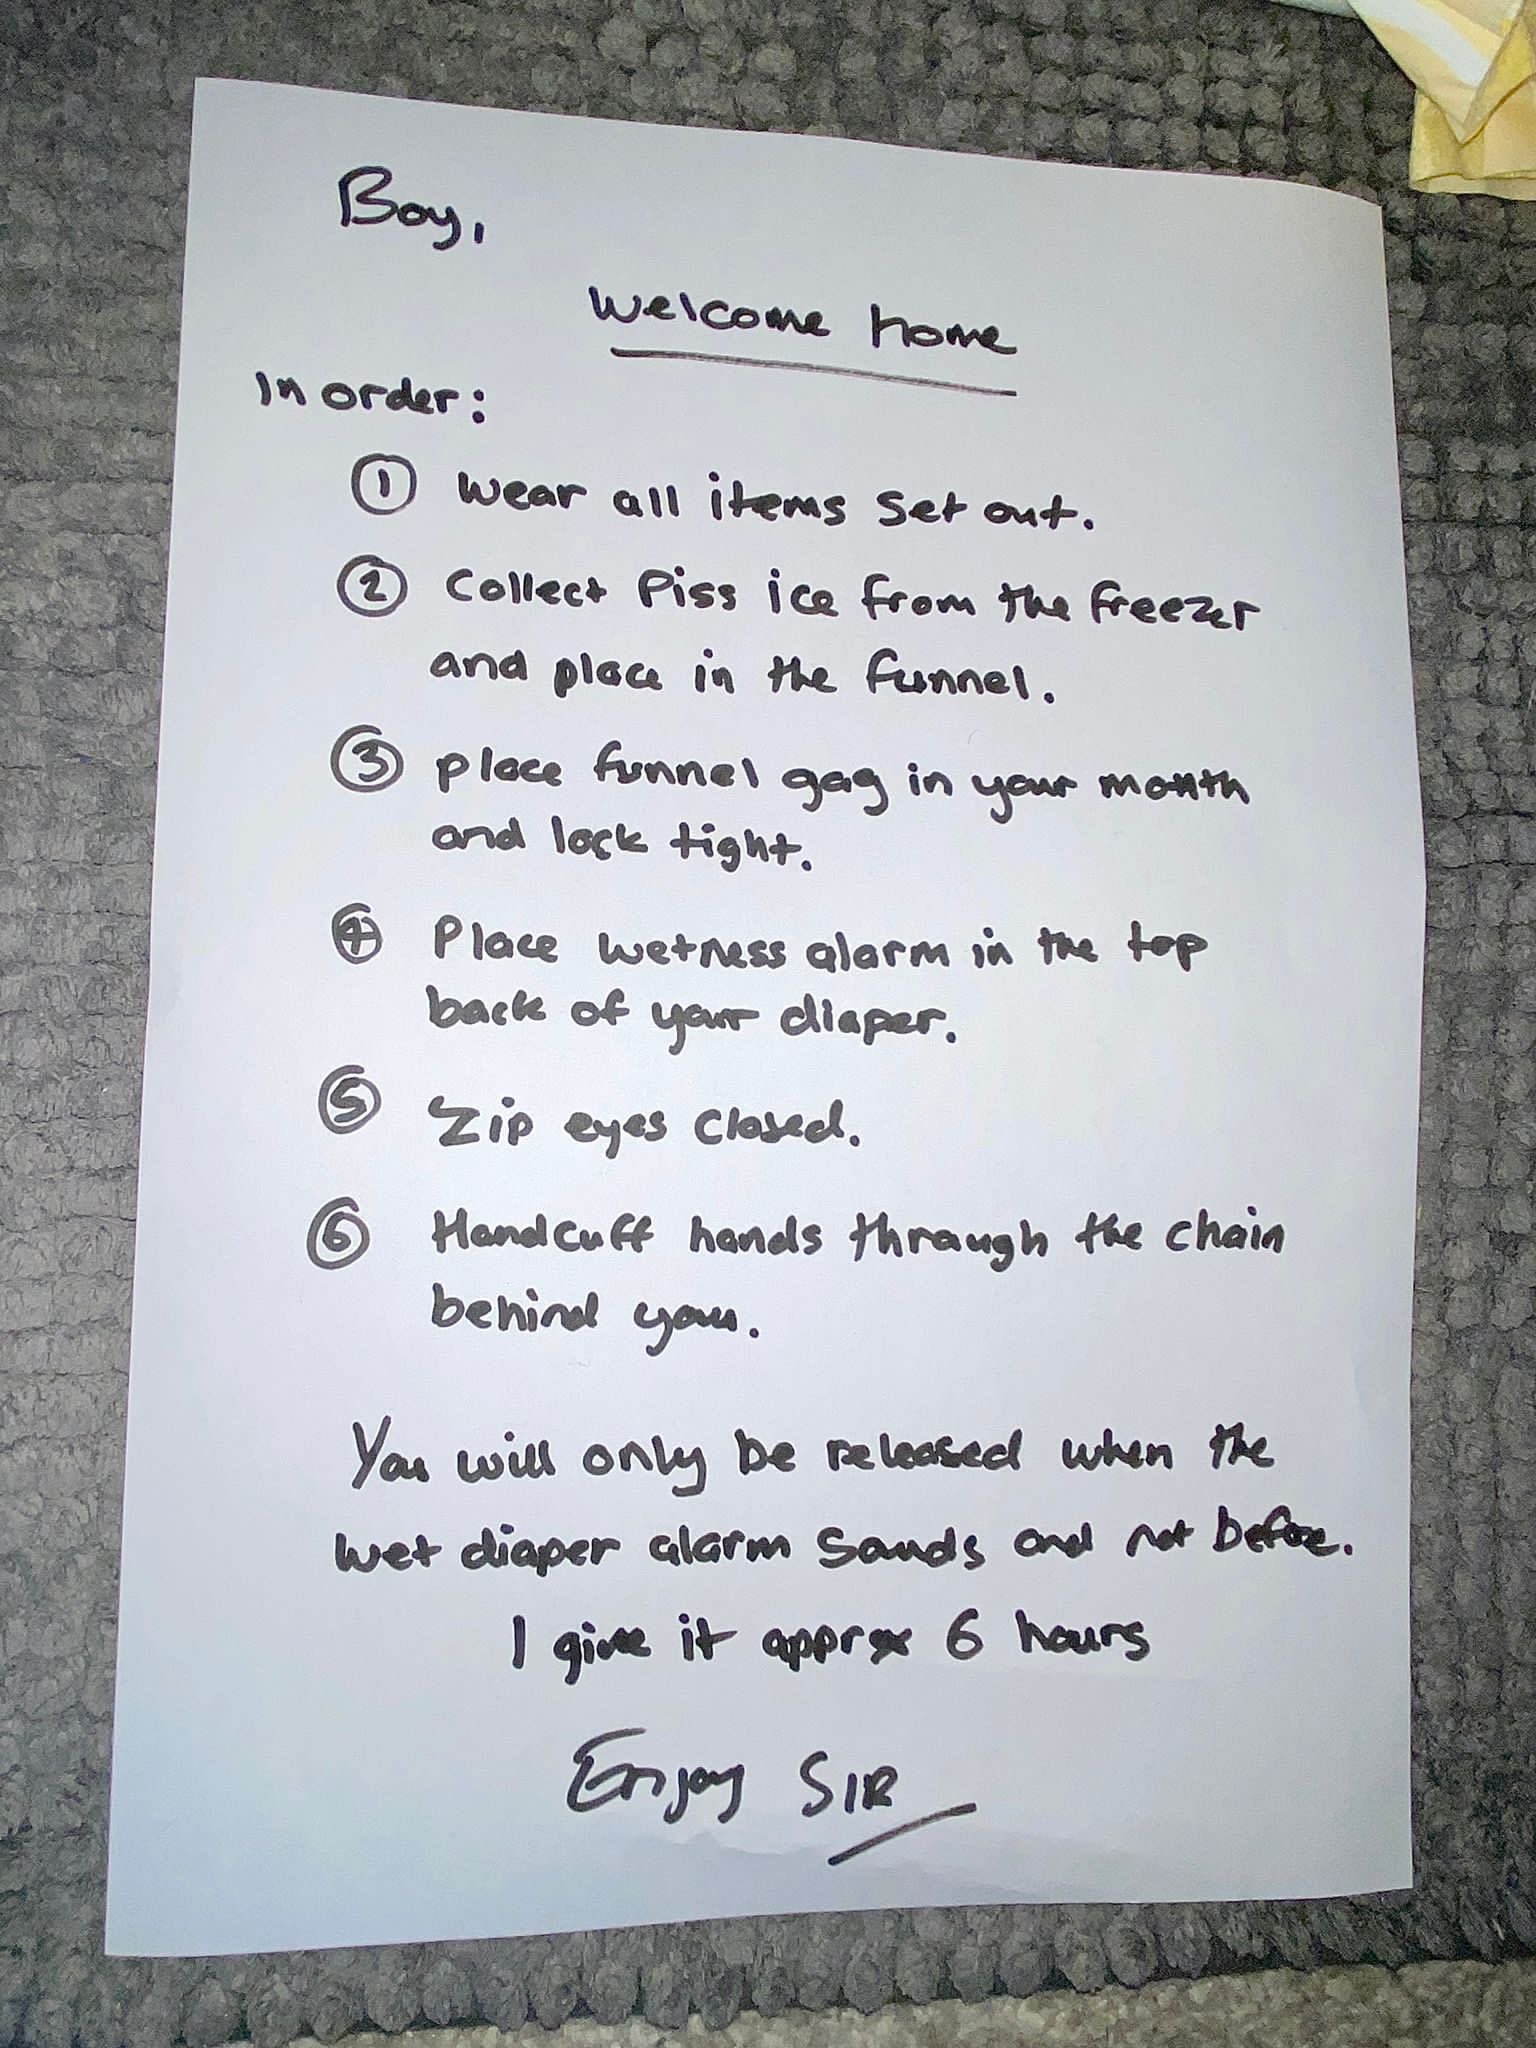 Boy,
Welcome home
In order:
① Wear all items set out.
② Collect Piss ice from the freezer
and place in the funnel.
③ place funnel gag in your mouth
and lock tight.
④ Place wetness alarm in the top
back of your diaper.
⑤ Zip eyes closed.
⑥ Handcuff hands through the chain
behind you.
You will only be released when the
wet diaper alarm sounds and not before.
I give it approx 6 hours
Enjoy SIR